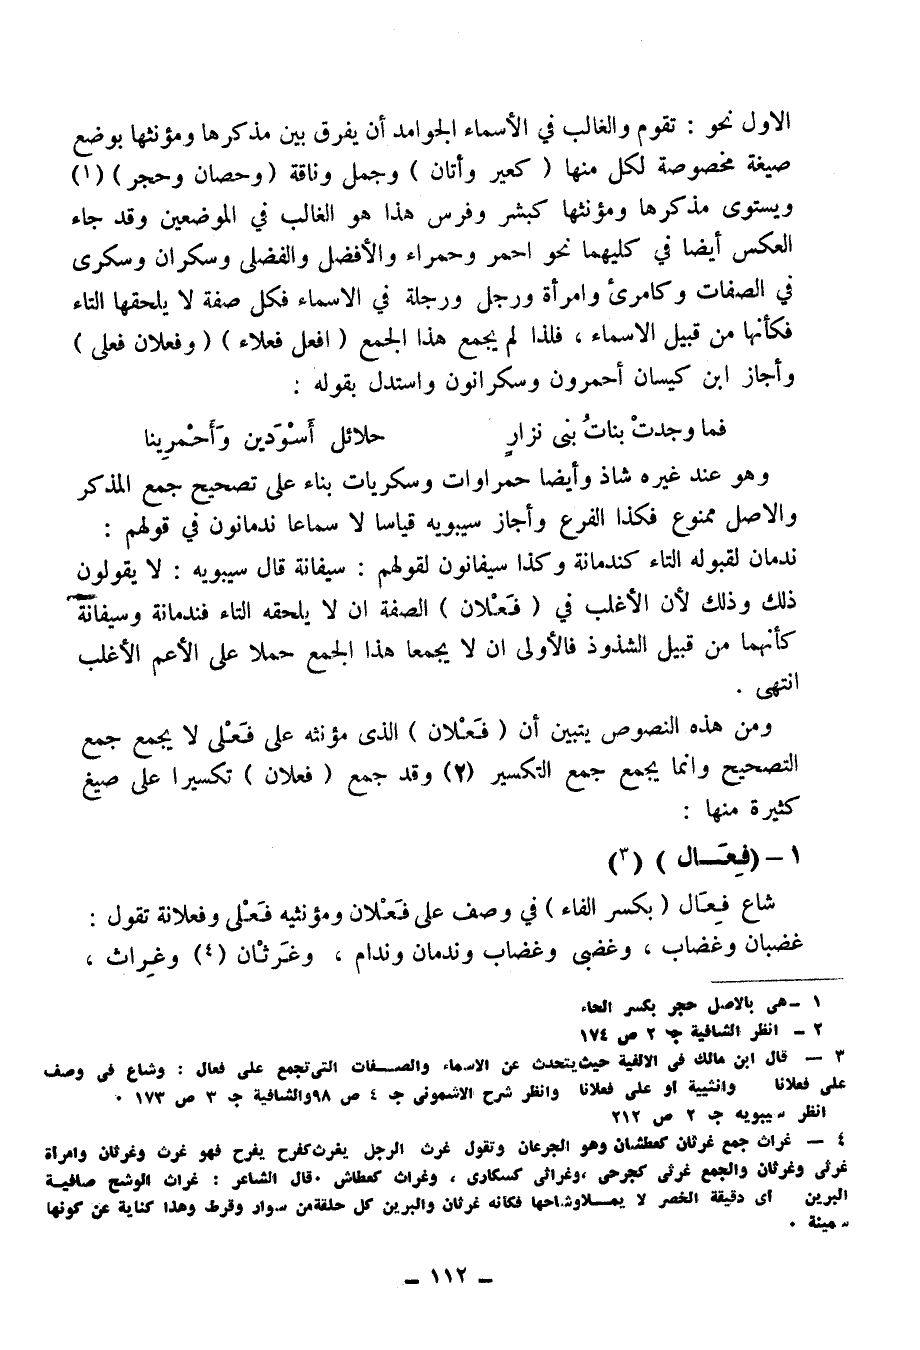 الاول نحو : تقوم والغالب في الأسماء الجوامد أن يفرق بين مذكرها ومؤنثها بوضع
صيغة مخصوصة لكل منها ( كعير وأتان ) وجمل وناقة ( وحصان وحجر ) (١)
ويستوى مذكرها ومؤنثها كبشر وفرس هذا هو الغالب في الموضعين وقد جاء
العكس أيضا في كليهما نحو احمر وحمراء والأفضل والفضلى وسكران وسكرى
في الصفات وكامرئ وامرأة ورجل ورجلة في الاسماء فكل صفة لا يلحقها التاء
فكأنها من قبيل الاسماء ، فلذا لم يجمع هذا الجمع ( افعل فعلاء ) ( وفعلان فعلى )
وأجاز ابن كيسان أحمرون وسكرانون واستدل بقوله :
فما وجدتْ بناتُ بنى نزارٍ حلائل أَسْوَدين وَأَحْمرِينا
وهو عند غيره شاذ وأيضا حمراوات وسكريات بناء على تصحيح جمع المذكر
والاصل ممنوع فكذا الفرع وأجاز سيبويه قياسا لا سماعا ندمانون في قولهم :
ندمان لقبوله التاء كندمانة وكذا سيفانون لقولهم : سيفانة قال سيبويه : لا يقولون
ذلك وذلك لأن الأغلب في ( فَعْلان ) الصفة ان لا يلحقه التاء فندمانة وسيفانة
كأنهما من قبيل الشذوذ فالأولى ان لا يجمعا هذا الجمع حملا على الأعم الأغلب
انتهى .
ومن هذه النصوص يتبين أن ( فَعْلان ) الذى مؤنثه على فَعْلى لا يجمع جمع
التصحيح وانما يجمع جمع التكسير (٢) وقد جمع ( فعلان ) تكسيرا على صيغ
كثيرة منها :
١ – (فِعَـــال ) (٣)
شاع فِعَال ( بكسر الفاء ) في وصف على فَعْلان ومؤنثيه فَعْلى وفعلانة تقول :
غضبان وغضاب ، وغضبى وغضاب وندمان وندام ، وغَرَثْان (٤) وغِراث ،
١ – هى بالاصل حجر بكسر الحاء
٢ – انظر الشافية جـ ٢ ص ١٧٤
٣ – قال ابن مالك فى الالفية حيث يتحدث عن الاسماء والصـــفات التى تجمع على فعال : وشاع فى وصف
على فعلانا وانثييه او على فعلانا وانظر شرح الاشمونى جـ ٤ ص ٩٨ والشافية جـ ٣ ص ١٧٣ .
انظر سيبويه جـ ٢ ص ٢١٢
٤ – غراث جمع غرثان كعطشان وهو الجرعان وتقول غرث الرجل يغرث كفرح يفرح فهو غرث وغرثان وامراة
غرثى وغرثان والجمع غرثى كجرحى ، وغراثى كسكارى ، وغراث كعطاش . قال الشاعر : غراث الوشح صافيـــة
البرين اى دقيقة الخصر لا يمــلاوشاحها فكانه غرثان والبرين كل حلقة من سوار وقرط وهذا كناية عن كونها
سمينة .
– ١١٢ –